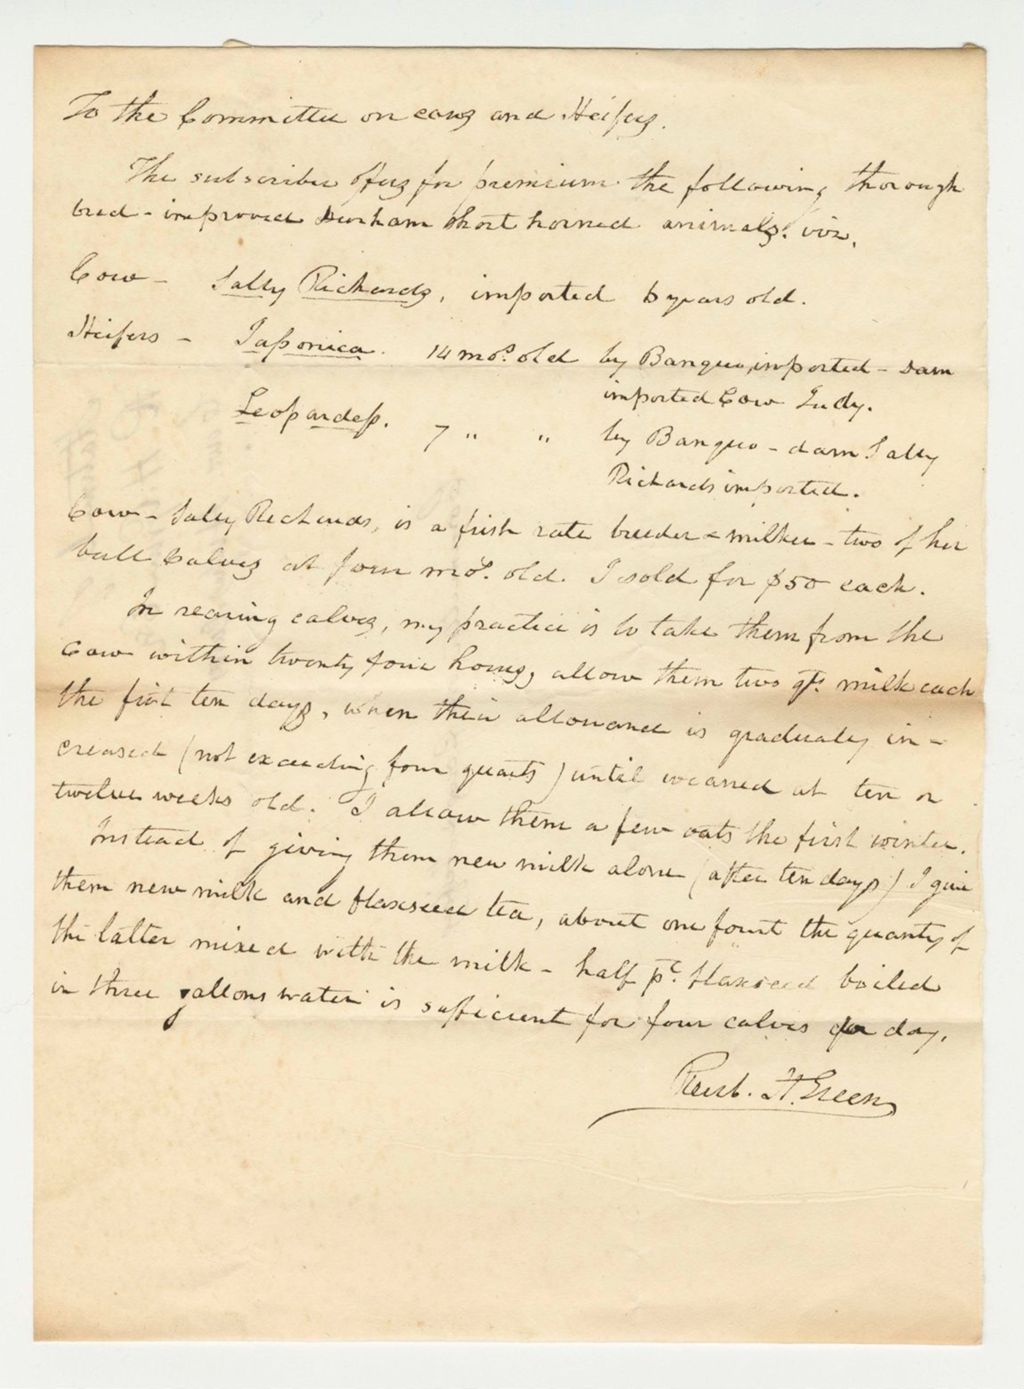 To the Committee on cows and Heifers.
The subscriber offers for premium the following thorough
bred - improved Durham Short horned animals. viz.
Cow - Sally Richards, imported 6 years old.
Heifers - Japonica. 14 mos. old by Banquo, imported - Dam
imported Cow Judy.
Leopardess. 7 " " by Banquo - dam Sally
Richards imported.
Cow - Sally Richards, is a first rate breeder & milker - two of her
bull Calves at four mos. old. I sold for $50 each.
In rearing calves, my practice is to take them from the
Cow within twenty four hours, allow them two qts. milk each
the first ten days, when their allowance is gradualy in-
creased (not exceeding four quarts) until weaned at ten or
twelve weeks old. I allow them a few oats the first winter.
Instead of giving them new milk alone (after ten days) I give
them new milk and flaxseed tea, about one fourt the quanty of
the latter mixed with the milk - half flaxseed boiled
in three gallons water is sufficient for four calves per day.
H. Green